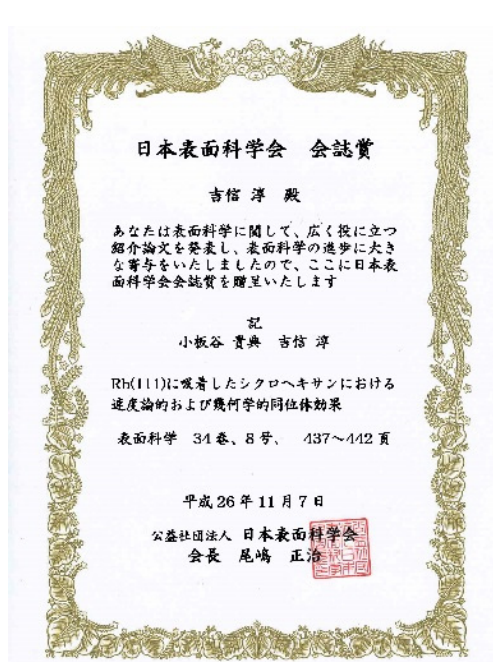 日本表面科学会　会誌賞
吉信 淳　殿
あなたは表面科学に関して、広く役に立つ
紹介論文を発表し、表面科学の進歩に大き
な寄与をいたしましたので、ここに日本表
面科学会会誌賞を贈呈いたします
記
小板谷 貴典　吉信 淳
Rh(111)に吸着したシクロヘキサンにおける
速度論的および幾何学的同位体効果
表面科学　34巻、8号、　437～442頁
平成26年11月7日
公益社団法人 日本表面科学会
会長　尾嶋　正治